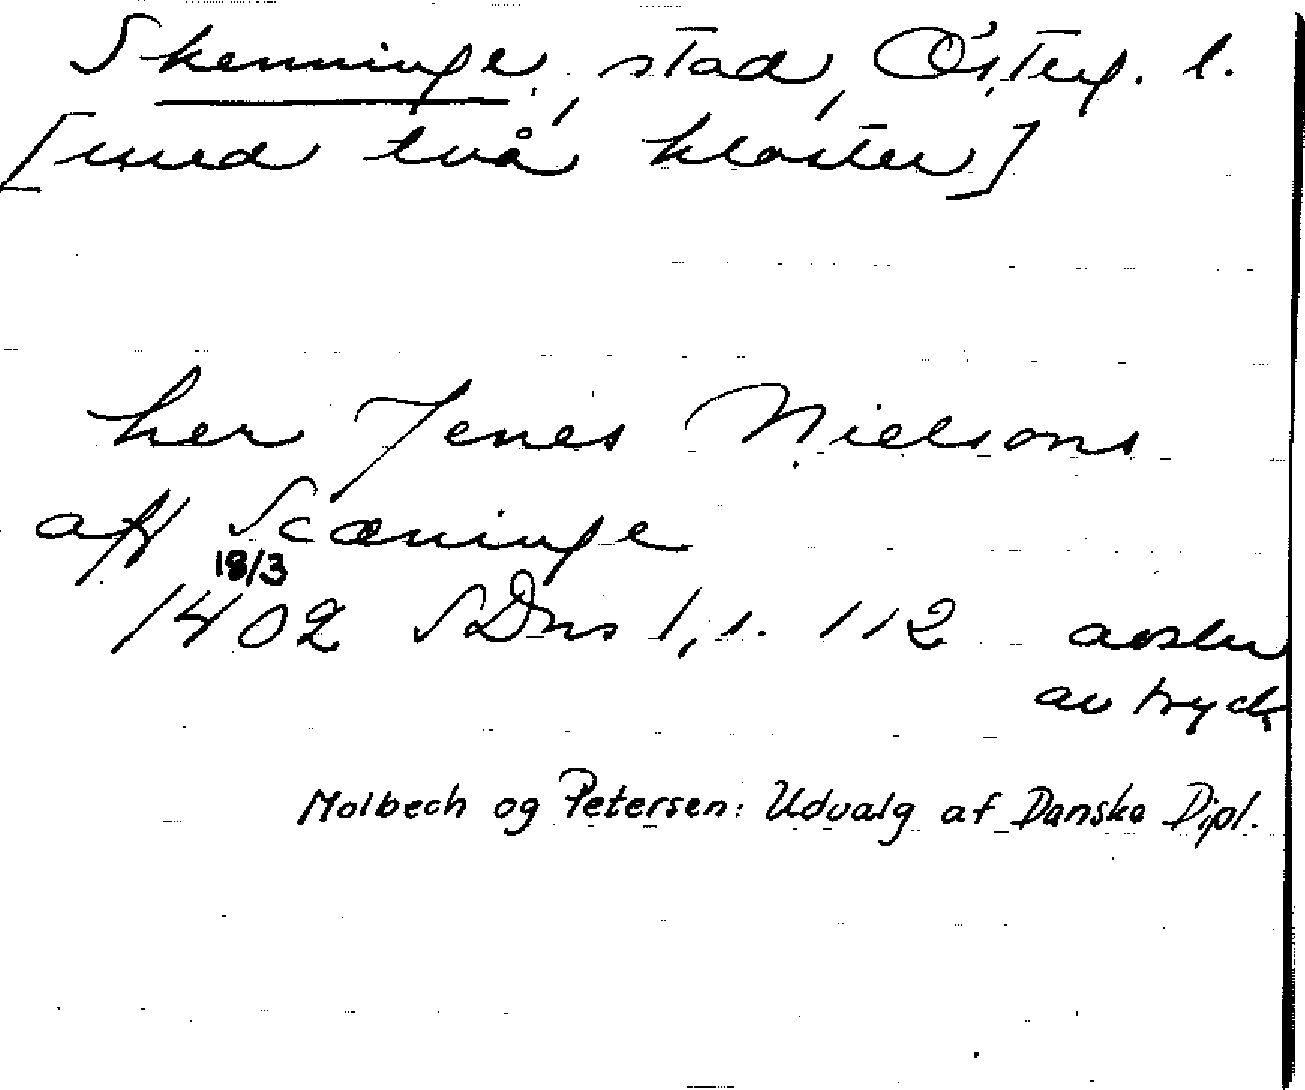 Skenninge, stad, Österg. l.
[med två kloster]
her Jenes Nielsons
aff Scæninge
18/3
1402 SDns 1, s. 112 avskr
av tryck
Molbech og Petersen: Udvalg af Danske Dipl.